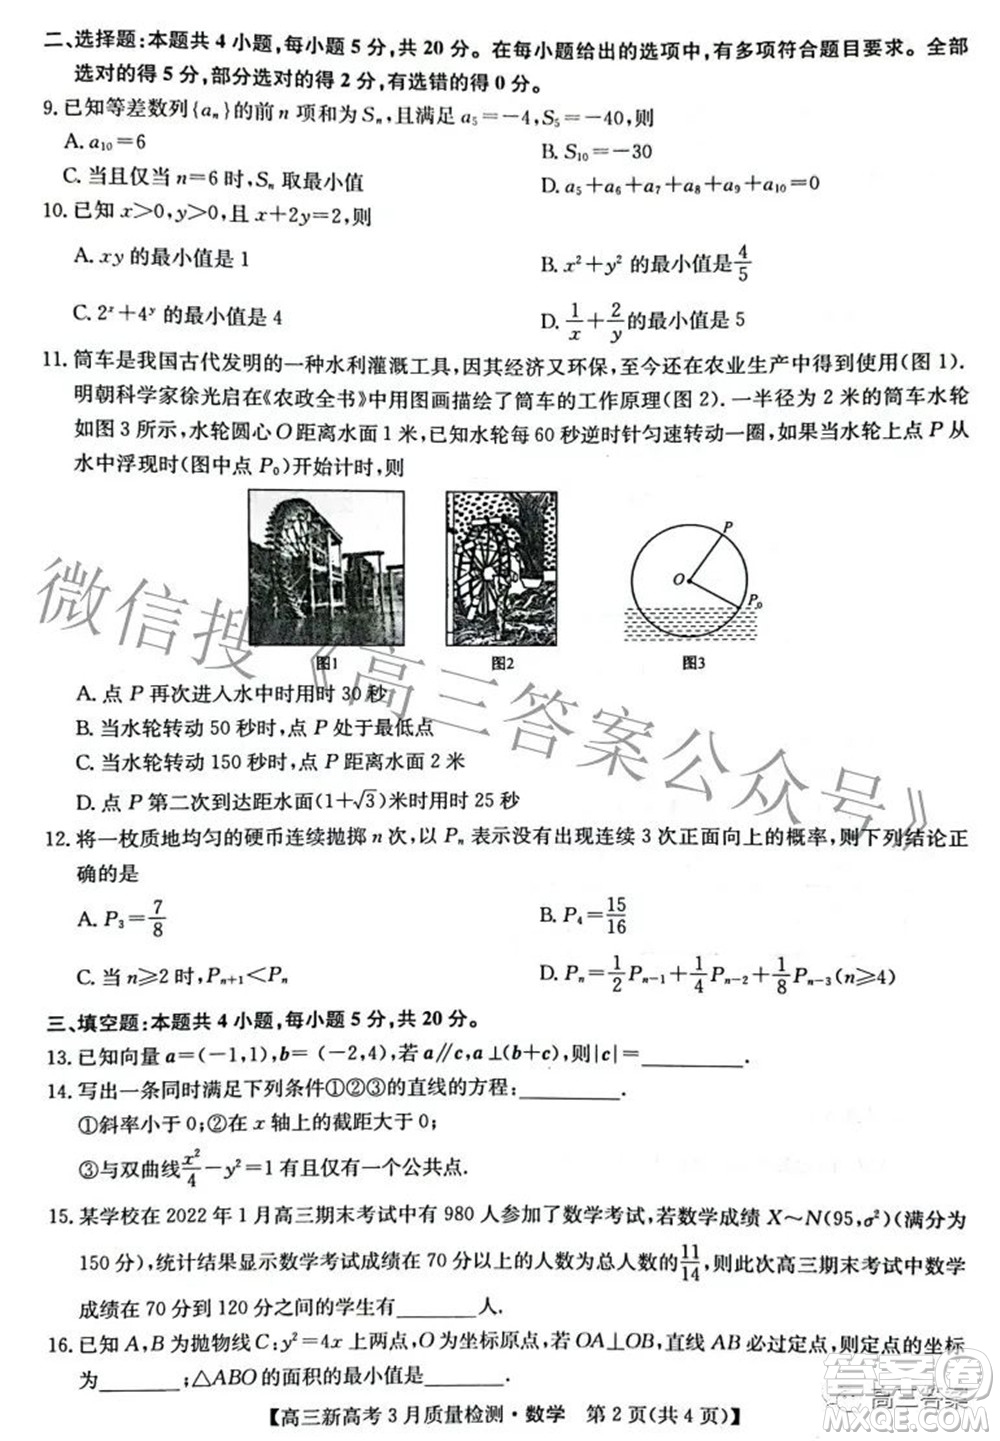 二、选择题:本题共 4 小题,每小题 5 分,共 20 分。在每小题给出的选项中,有多项符合题目要求。全部
选对的得 5 分,部分选对的得 2 分,有选错的得 0 分。
9. 已知等差数列{aₙ}的前 n 项和为 Sₙ,且满足 a₅=-4,S₅=-40,则
A. a₁₀=6
B. S₁₀=-30
C. 当且仅当 n=6 时,Sₙ 取最小值
D. a₅+a₆+a₇+a₈+a₉+a₁₀=0
10. 已知 x>0,y>0,且 x+2y=2,则
A. xy 的最小值是 1
B. x²+y² 的最小值是 4/5
C. 2ˣ+4ʸ 的最小值是 4
D. 1/x+2/y 的最小值是 5
11. 筒车是我国古代发明的一种水利灌溉工具,因其经济又环保,至今还在农业生产中得到使用(图 1).
明朝科学家徐光启在《农政全书》中用图画描绘了筒车的工作原理(图 2). 一半径为 2 米的筒车水轮
如图 3 所示,水轮圆心 O 距离水面 1 米,已知水轮每 60 秒逆时针匀速转动一圈,如果当水轮上点 P 从
水中浮现时(图中点 P₀)开始计时,则
P
O
P₀
图1
图2
图3
A. 点 P 再次进入水中时用时 30 秒
B. 当水轮转动 50 秒时,点 P 处于最低点
C. 当水轮转动 150 秒时,点 P 距离水面 2 米
D. 点 P 第二次到达距水面(1+√3)米时用时 25 秒
12. 将一枚质地均匀的硬币连续抛掷 n 次,以 Pₙ 表示没有出现连续 3 次正面向上的概率,则下列结论正
确的是
A. P₃=7/8
B. P₄=15/16
C. 当 n≥2 时,Pₙ₊₁<Pₙ
D. Pₙ=1/2Pₙ₋₁+1/4Pₙ₋₂+1/8Pₙ₋₃(n≥4)
三、填空题:本题共 4 小题,每小题 5 分,共 20 分。
13. 已知向量 a=(-1,1),b=(-2,4),若 a∥c,a⊥(b+c),则|c|=________.
14. 写出一条同时满足下列条件①②③的直线的方程:________.
①斜率小于 0;②在 x 轴上的截距大于 0;
③与双曲线x²/4-y²=1 有且仅有一个公共点.
15. 某学校在 2022 年 1 月高三期末考试中有 980 人参加了数学考试,若数学成绩 X~N(95,σ²)(满分为
150 分),统计结果显示数学考试成绩在 70 分以上的人数为总人数的11/14,则此次高三期末考试中数学
成绩在 70 分到 120 分之间的学生有________人.
16. 已知 A,B 为抛物线 C:y²=4x 上两点,O 为坐标原点,若 OA⊥OB,直线 AB 必过定点,则定点的坐标
为________;△ABO 的面积的最小值为________.
【高三新高考 3 月质量检测·数学 第 2 页(共 4 页)】
微信搜《高三答案公众号》
答案圈
高三答案
MXQE.COM